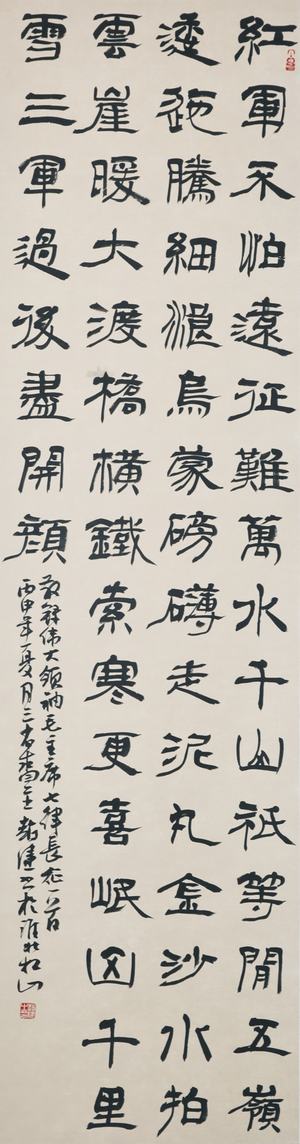 紅軍不怕遠征難萬水千山祇等閒五嶺
逶迤騰細浪烏蒙磅礴走泥丸金沙水拍
雲崖暖大渡橋橫鐵索寒更喜岷山千里
雪三軍過後盡開顏
敬錄伟大領袖毛主席七律長征一首
丙申年夏月三 於淮北相山